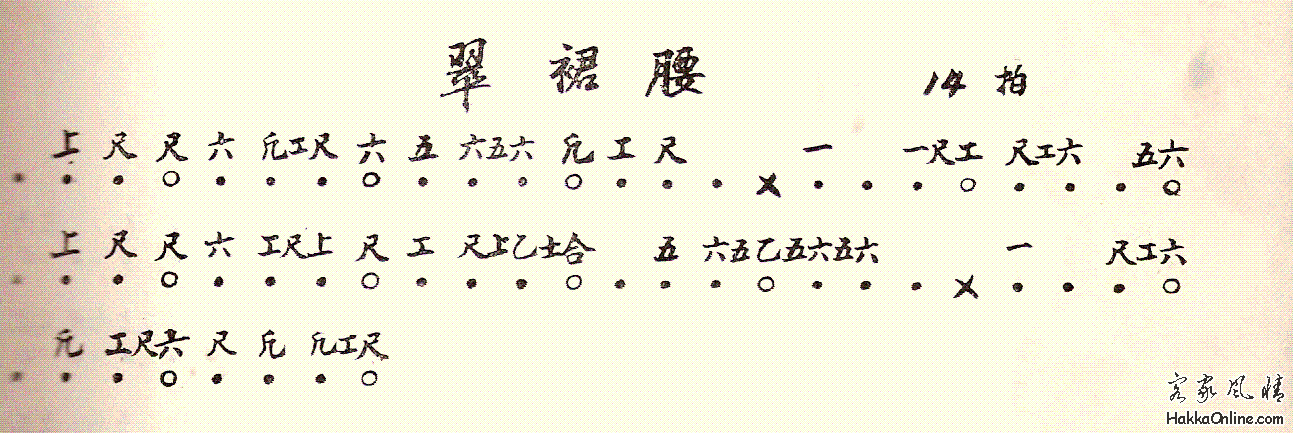 翠裙腰 14拍
上 尺 尺 六 凡工尺 六 五 六五六 凡 工 尺 一 一尺工 尺工六 五六
上 尺 尺 六 工尺上 尺 工 尺上乙士合 五 六五乙五六五六 一 尺工六
凡 工尺六 尺 凡 凡工尺
客家风情
HakkaOnline.com